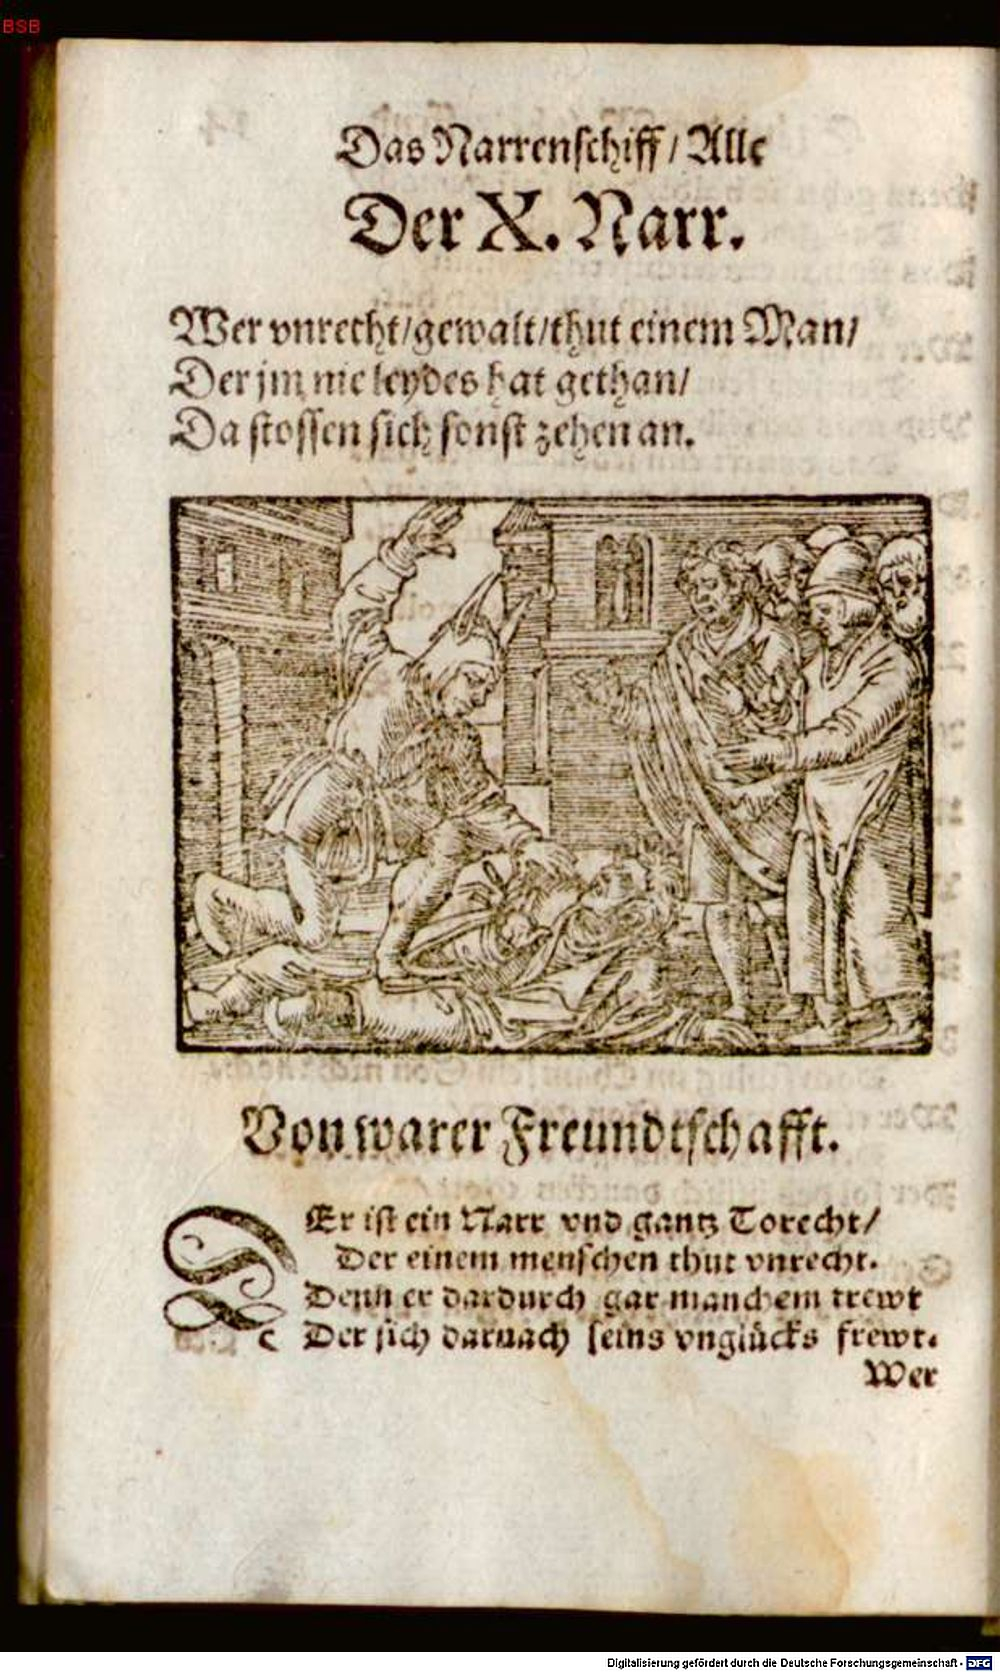 BSB
Das Narrenschiff / Alle
Der X. Narr.
Wer vnrecht / gewalt / thut einem Man /
Der jm nie leydes hat gethan /
Da stossen sich sonst zehen an.
Von warer Freundtschafft.
DEr ist ein Narr vnd gantz Torecht /
Der einem menschen thut vnrecht.
Denn er dardurch gar manchem trewt
Der sich darnach seins vnglücks frewt.
Wer
Digitalisierung gefördert durch die Deutsche Forschungsgemeinschaft - DFG